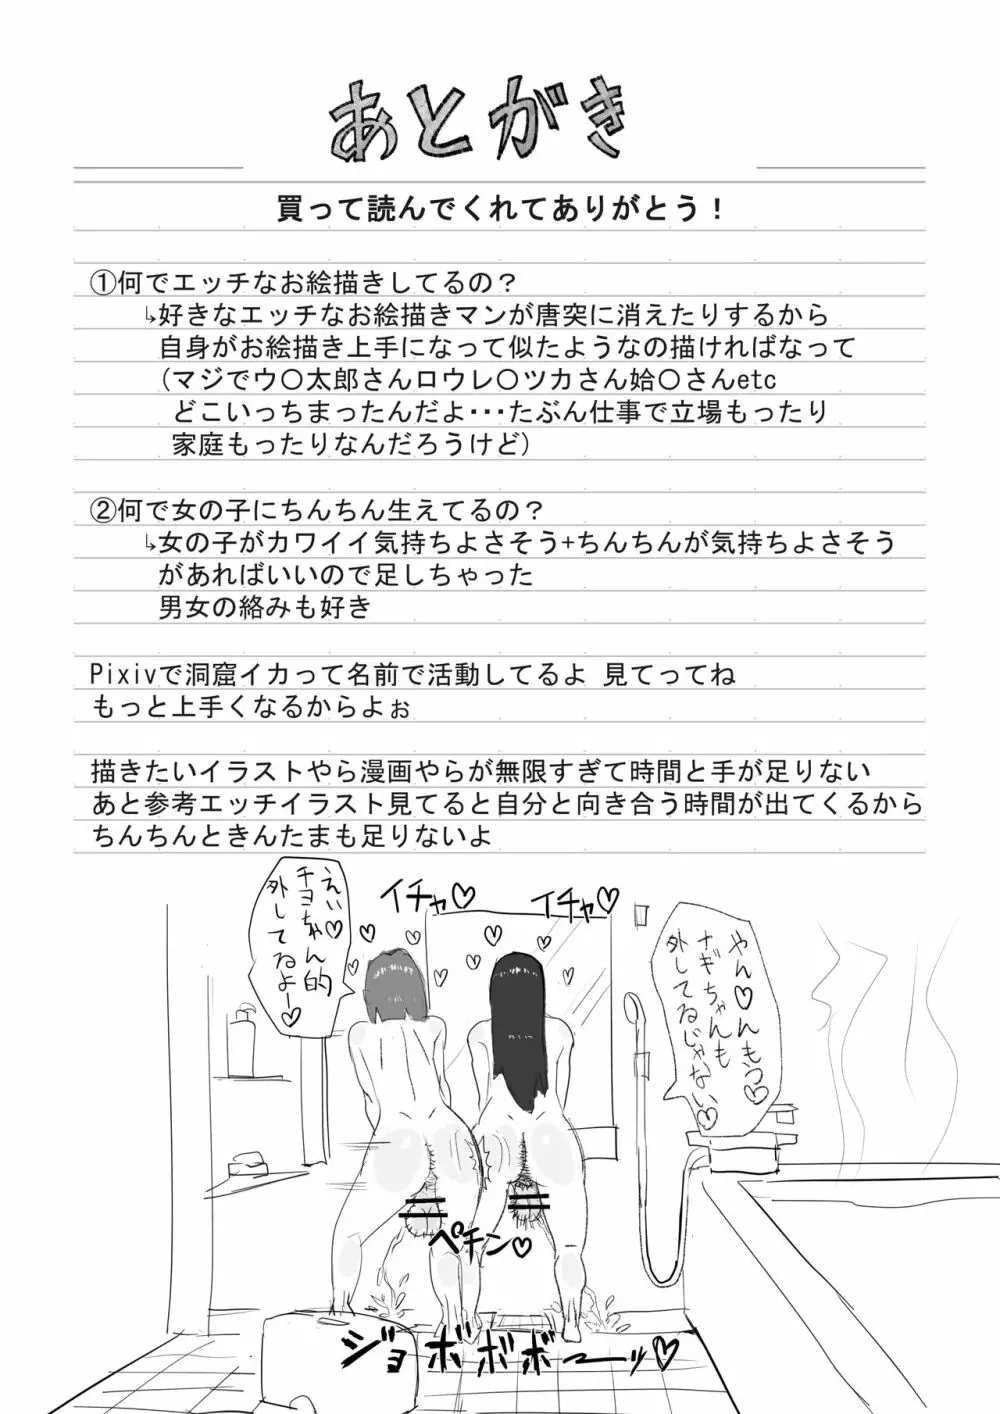 あとがき
買って読んでくれてありがとう！
①何でエッチなお絵描きしてるの？
↳好きなエッチなお絵描きマンが唐突に消えたりするから
自身がお絵描き上手になって似たようなの描ければなって
(マジでウ〇太郎さんロウレ〇ツカさん姶〇さんetc
どこいっちまったんだよ･･･たぶん仕事で立場もったり
家庭もったりなんだろうけど)
②何で女の子にちんちん生えてるの？
↳女の子がカワイイ気持ちよさそう+ちんちんが気持ちよさそう
があればいいので足しちゃった
男女の絡みも好き
Pixivで洞窟イカって名前で活動してるよ 見てってね
もっと上手くなるからよぉ
描きたいイラストやら漫画やらが無限すぎて時間と手が足りない
あと参考エッチイラスト見てると自分と向き合う時間が出てくるから
ちんちんときんたまも足りないよ
イチャ♡
イチャ♡
やん♡んもう♡
ナギちゃんも
外してるじゃない♡
えい♡
チヨちゃん的
外してるよー♡
ペチン♡
ジョボボボーッ♡